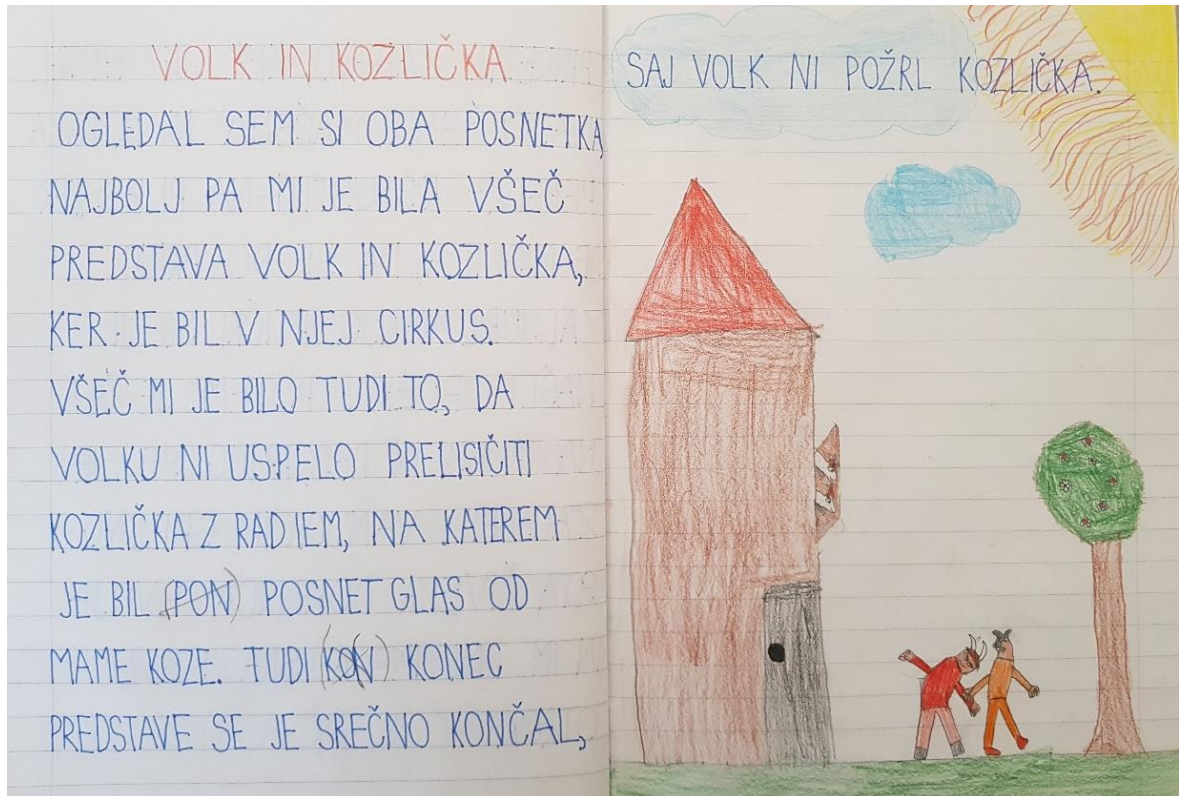 VOLK IN KOZLIČKA
OGLEDAL SEM SI OBA POSNETKA
NAJBOLJ PA MI JE BILA VŠEČ
PREDSTAVA VOLK IN KOZLIČKA,
KER JE BIL V NJEJ CIRKUS.
VŠEČ MI JE BILO TUDI TO, DA
VOLKU NI USPELO PRELISIČITI
KOZLIČKA Z RADIEM, NA KATEREM
JE BIL (PON) POSNET GLAS OD
MAME KOZE. TUDI (KON) KONEC
PREDSTAVE SE JE SREČNO KONČAL,
SAJ VOLK NI POŽRL KOZLIČKA.